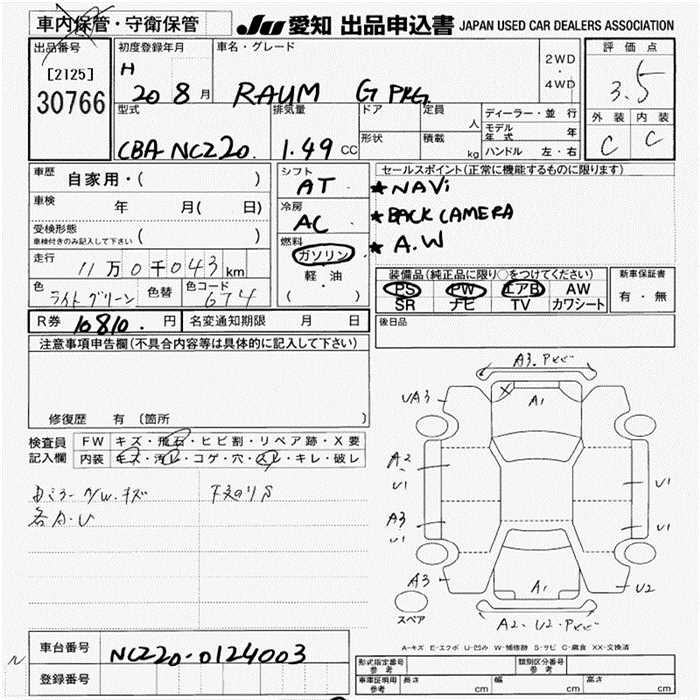 車内保管・守衛保管
JU 愛知 出品申込書 JAPAN USED CAR DEALERS ASSOCIATION
出品番号
[2125]
30766
初度登録年月
H
20 8 月
車名・グレード
RAUM G PKG
2WD
・
4WD
評価点
3.5
外装 内装
C C
型式
CBA-NCZ20.
排気量
1.49 CC
ドア
形状
定員
人
積載
kg
ディーラー・並 行
モデル年式 年
ハンドル 左・右
車歴
自家用・( )
車検 年 月( 日)
受検形態
車検付きのみ記入して下さい ( )
走行
11万0千043km
色
ライトグリーン
色替
色コード
674
シフト
AT
冷房
AC
燃料
ガソリン
軽・油
( ・ )
セールスポイント(正常に機能するものに限ります)
★NAVi
★BACK CAMERA
★A.W
装備品(純正品に限り○をつけてください)
PS PW エアB AW
SR ナビ TV カワシート
新車保証書
有・無
後日品
R券 10810. 円
名変通知期限 月 日
注意事項申告欄(不具合内容等は具体的に記入して下さい)
修復歴 有 [箇所 ]
検査員
記入欄
FW キズ・飛石・ヒビ割・リペア跡・X要
内装 キズ・汚レ・コゲ・穴・スレ・キレ・破レ
各A・U
A3.
A1
UA3
A2
U1
A3
U1
A3
U1
U1
U2
A1
A2・U2・
スペア
A-キズ E-エクボ U-凹み W-補修跡 S-サビ C-腐食 XX-交換済
車台番号
NCZ20-0124003
登録番号
形式指定番号
参考
類別区分番号
参考
車庫証明用
参考
長さ cm
幅 cm
高さ cm